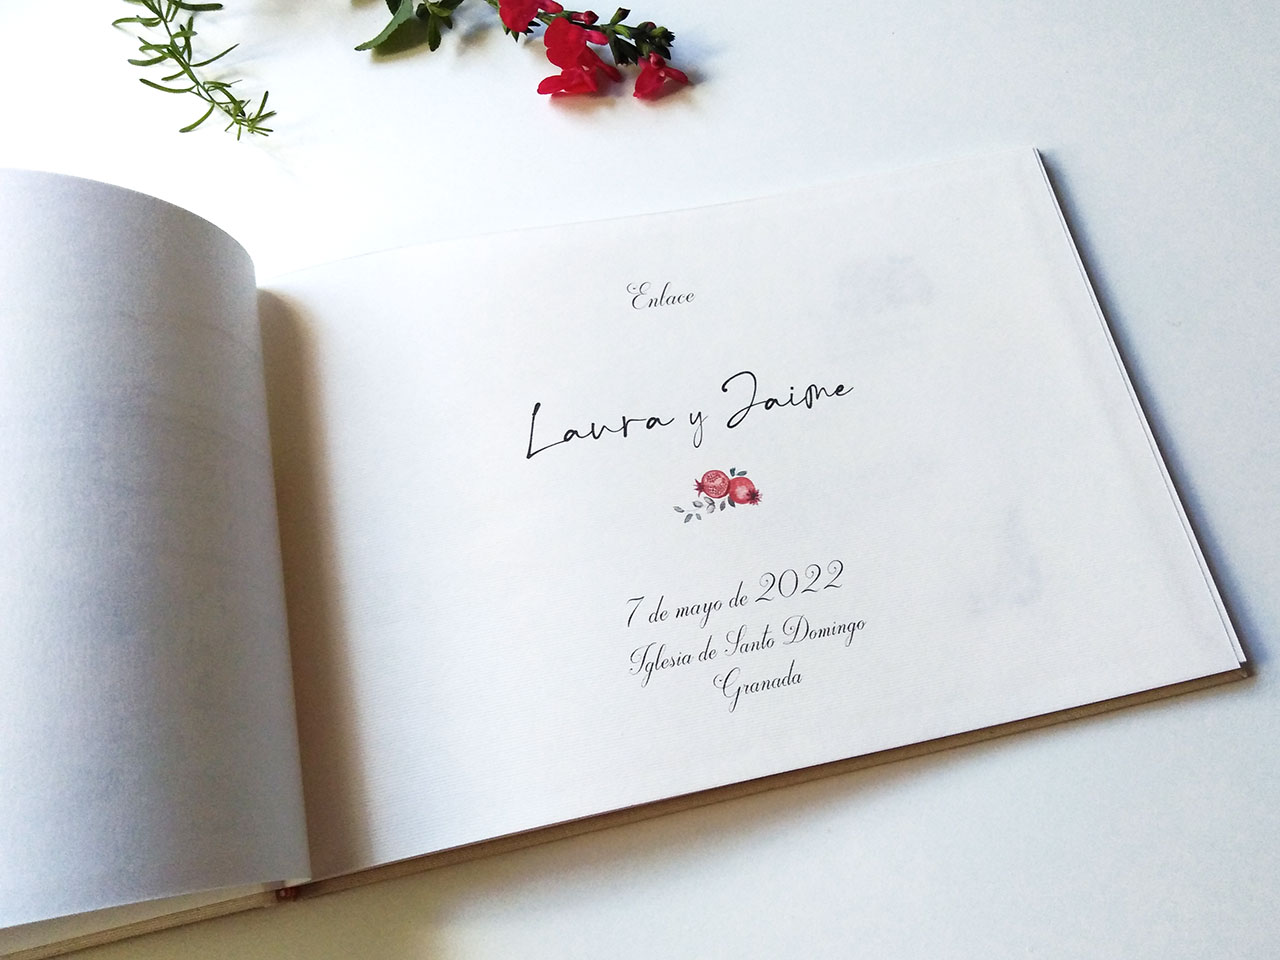 Enlace
Laura y Jaime
7 de mayo de 2022
Iglesia de Santo Domingo
Granada